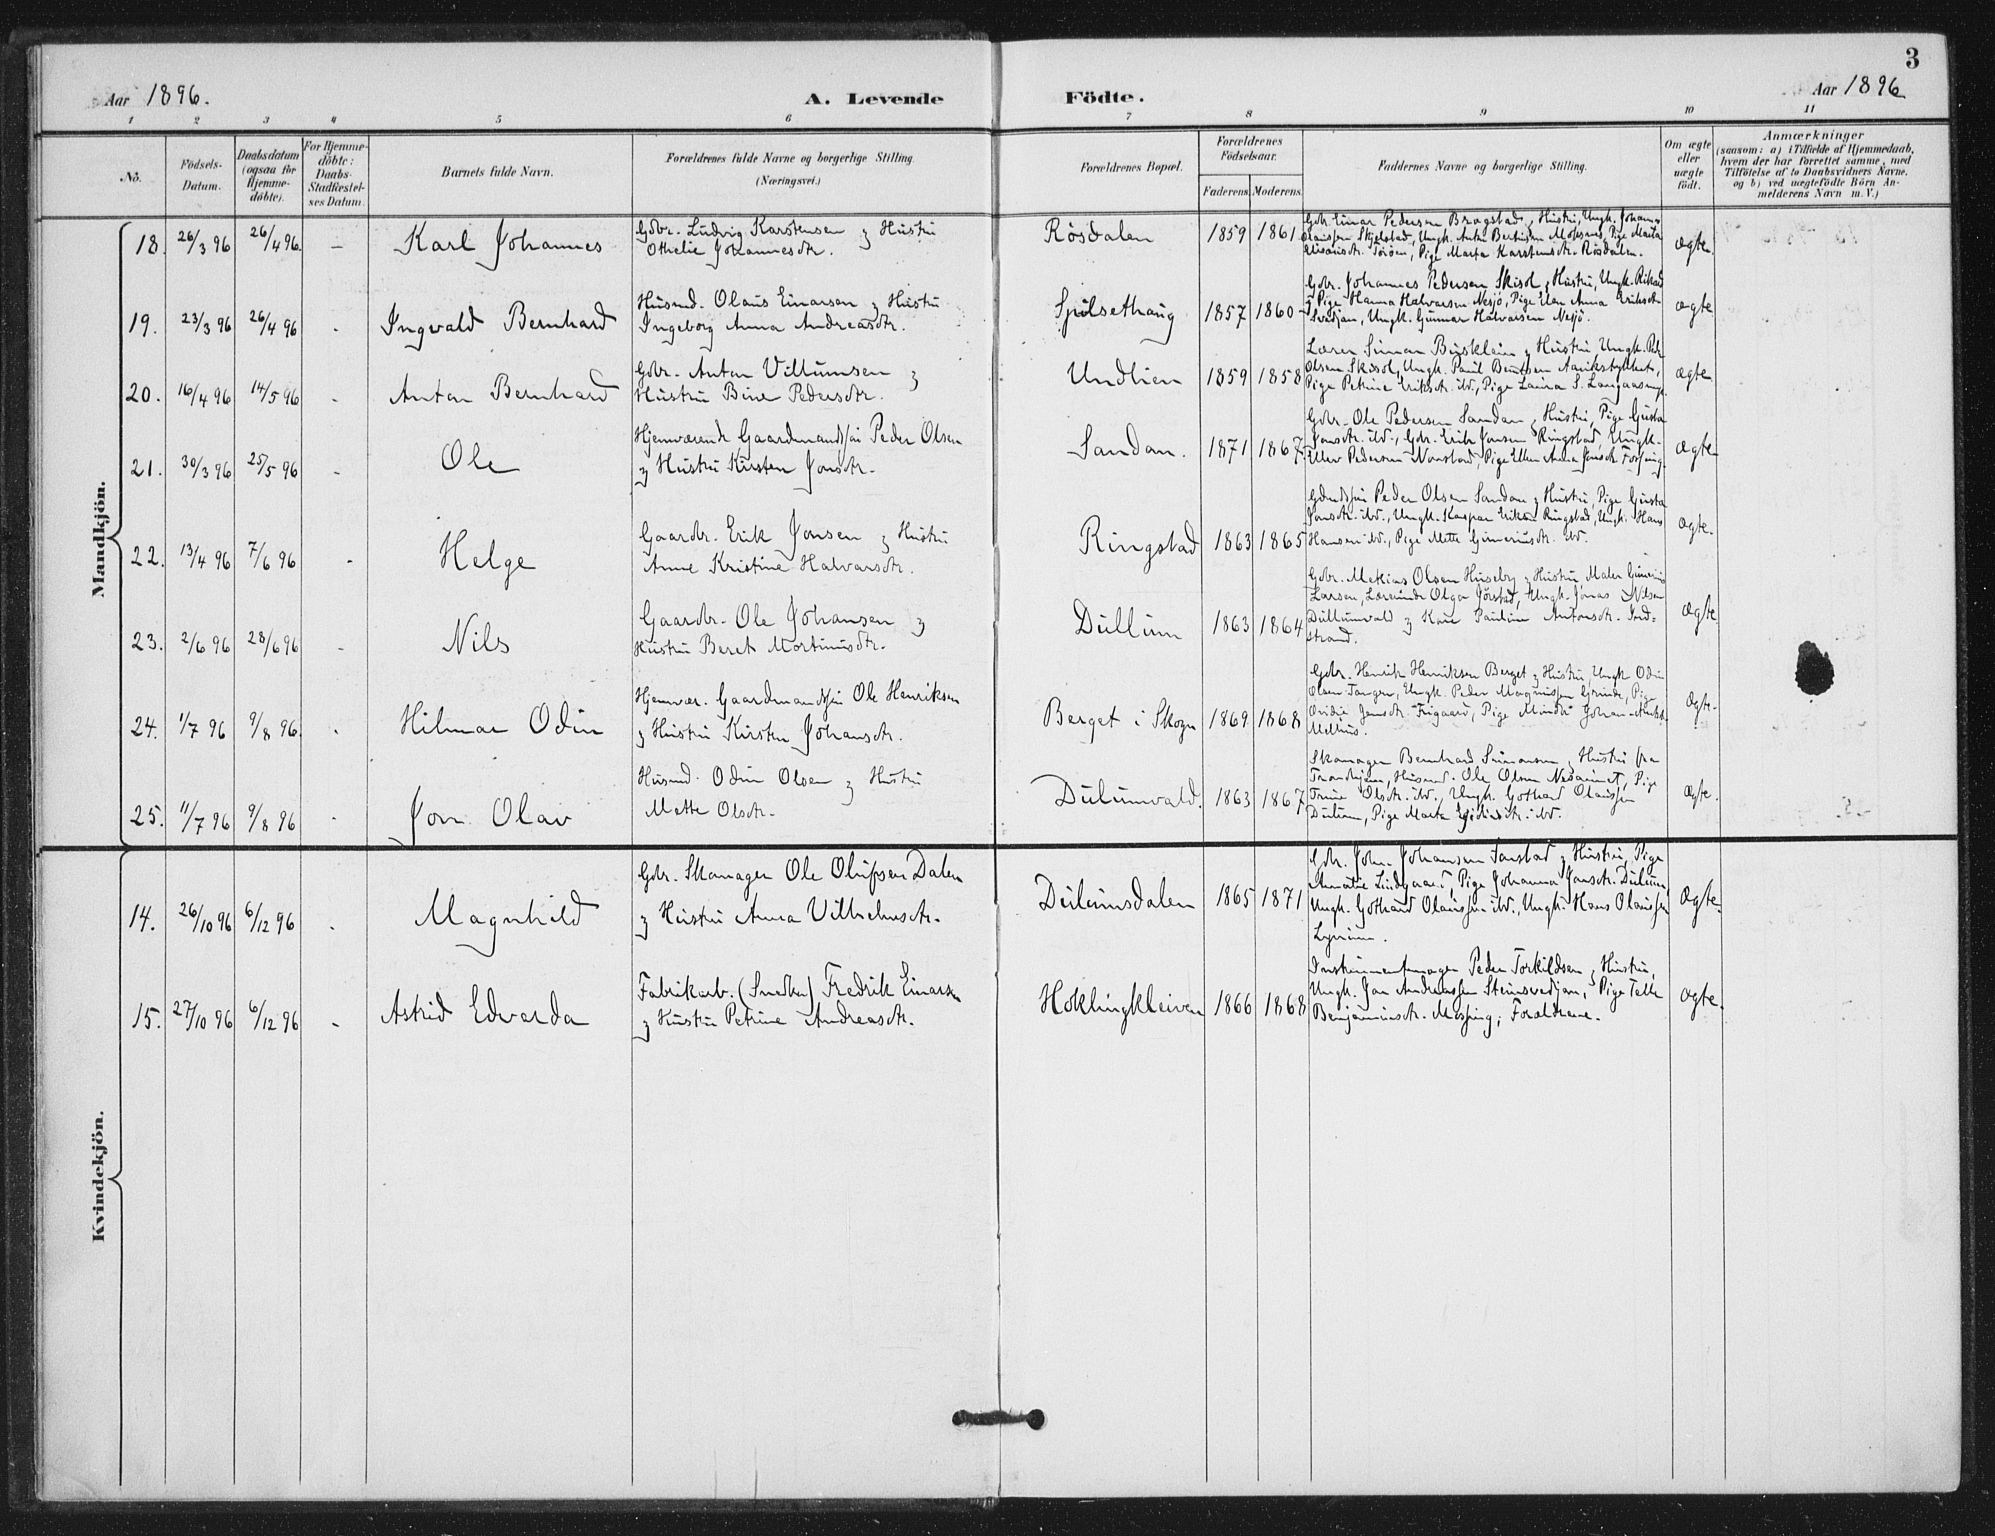 3
Aar 1896.
A. Levende Födte.
Aar 1896
1 2 3 4 5 6 7 8 9 10 11
No.
Födsels-
Datum.
Daabsdatum
(ogsaa för
Hjemme-
döbte).
For Hjemme-
döbte:
Daabs-
Stadfæstel-
ses Datum.
Barnets fulde Navn.
Forældrenes fulde Navne og borgerlige Stilling.
(Næringsvei.)
Forældrenes Bopæl.
Forældrenes
Födselsaar.
Faderens.
Moderens.
Faddernes Navne og borgerlige Stilling.
Om ægte
eller
uægte
födt.
Anmærkninger
(saasom: a) i Tilfælde af Hjemmedaab,
hvem der har forrettet samme, med
Tilföielse af to Daabsvidners Navne,
og b) ved uægtefödte Börn An-
melderens Navn m. V.)
Mandkjön.
18. 26/3 96 26/4 96. - Karl Johannes
Gdbr. Ludvig Karstensen & Hustru
Othelie Johannesdtr.
Rösdalen 1859 1861
Gdbr. Einar Pedersen Bragstad, Hustru, Ungk. Johan
Olaussen Skjelstad, Ungk. Anton Berntsen Mossing, Pige Marta
Pige Marta Karstensdtr. Rösdalen.
ægte.
19. 23/3 96 26/4 96 - Ingvald Bernhard
Husmd. Olaus Einarsen & Hustru
Ingeborg Anna Andreasdtr.
Spilsethaug 1857 1860
Gdbr. Johannes Pedersen Skisol, Hustru, Ungk. Rikard
& Pige Hanna Halvarsen Nesjö, Pige Elen Anna Eriksdtr.
Svedjan, Ungk. Gunnar Halvarsen Nesjö.
ægte
20. 16/4 96 14/5 96 - Anton Bernhard
Gdbr. Anton Villumsen &
Hustru Bine Pedersdtr.
Undlien 1859 1858
Lærer Simon Buskleim & Hustru Ungk. Peder
Olsen Skisol, Ungk. Paul Berntsen
Pige Petrine Eriksdtr. ibd., Pige Laura S. Langaasmyr.
ægte
21. 30/3 96 25/5 96 - Ole
Hjemværende Gaardmandssøn Peder Olsen
& Hustru Kirsten Jonsdtr.
Sandan. 1871 1867
Gdbr. Ole Pedersen Sandan & Hustru, Pige Gusta
Jonsdtr. ibd., Gdbr. Erik Jonsen Ringstad, Ungk.
Pedersen Nonstad, Pige Ellen Anna Jonsdtr.
ægte
22. 13/4 96 7/6 96 - Helge
Gaardbr. Erik Jonsen & Hustru
Anne Kristine Halvarsdtr.
Ringstad 1863 1865
Peder Olsen Sandan & Hustru, Pige Gusta
Jonsdtr. ibd., Ungk. Kaspar Eriksen Ringstad, Ungk. Hans
Hansen ibd., Pige Mette Guneriusdtr. ibd.
ægte.
23. 2/6 96 28/6 96 - Nils
Gaardbr. Ole Johansen &
Hustru Beret Mortinusdtr.
Dullum 1863 1864
Gdbr. Mathias Olsen Huseby & Hustru Maler Gunerius
Larsen, Lærerinde Olga Jörstad, Ungk. Jonas Nilsen
Dullumvald & Kone Pauline Antonsdtr. Ind-
strand.
ægte
24. 1/7 96 9/8 96. - Hilmar Odin
Hjemvær. Gaardmandssøn Ole Henriksen
& Hustru Kirsten Johansdtr.
Berget i Skogn 1869 1868
Gdbr. Henrik Henriksen Berget & Hustru, Ungk. Odin
Olsen Tangen, Ungk. Peder Magnussen Grinde, Pige
Ovidie Jensdtr. Frigaard, Pige
Melhus.
ægte.
25. 11/7 96 9/8 96 - Jon Olav
Husmd. Odin Olsen & Hustru
Mette Olsdtr.
Dulumvald. 1863 1867
Skomager Bernhard Simonsen, Hustru fra
Trondhjem, Husmd. Ole Olsen Nesaunet, Pige
Trine Olsdtr. ibd. Ungk. Gothard Olaussen
Dulum, Pige Marta Egidiusdtr. ibd.
ægte.
Kvindekjön.
14. 26/10 96 6/12 96 - Magnhild
Gdbr. Skomager Ole Olufsen Dalen
& Hustru Anna Vilhelmsdtr.
Dulumsdalen 1865 1871
Gdbr. John Johansen Sanstad & Hustru, Pige
Amalie Lindgaard, Pige Johanna Jonsdtr. Dulum,
Ungk. Gothard Olaussen ibd., Ungk. Hans Olaussen
ægte.
15. 27/10 96 6/12 96 - Astrid Edvarda
Fabrikarb. (Snedker) Fredrik Einarsen
& Hustru Petrine Andreasdtr.
Hoklingkleiven 1866 1868
Instrumentmager Peder Torkildsen & Hustru,
Ungk. Jon Andreassen Steinsvedjan, Pige
Benjaminsdtr. Mossing; Forældrene.
ægte.